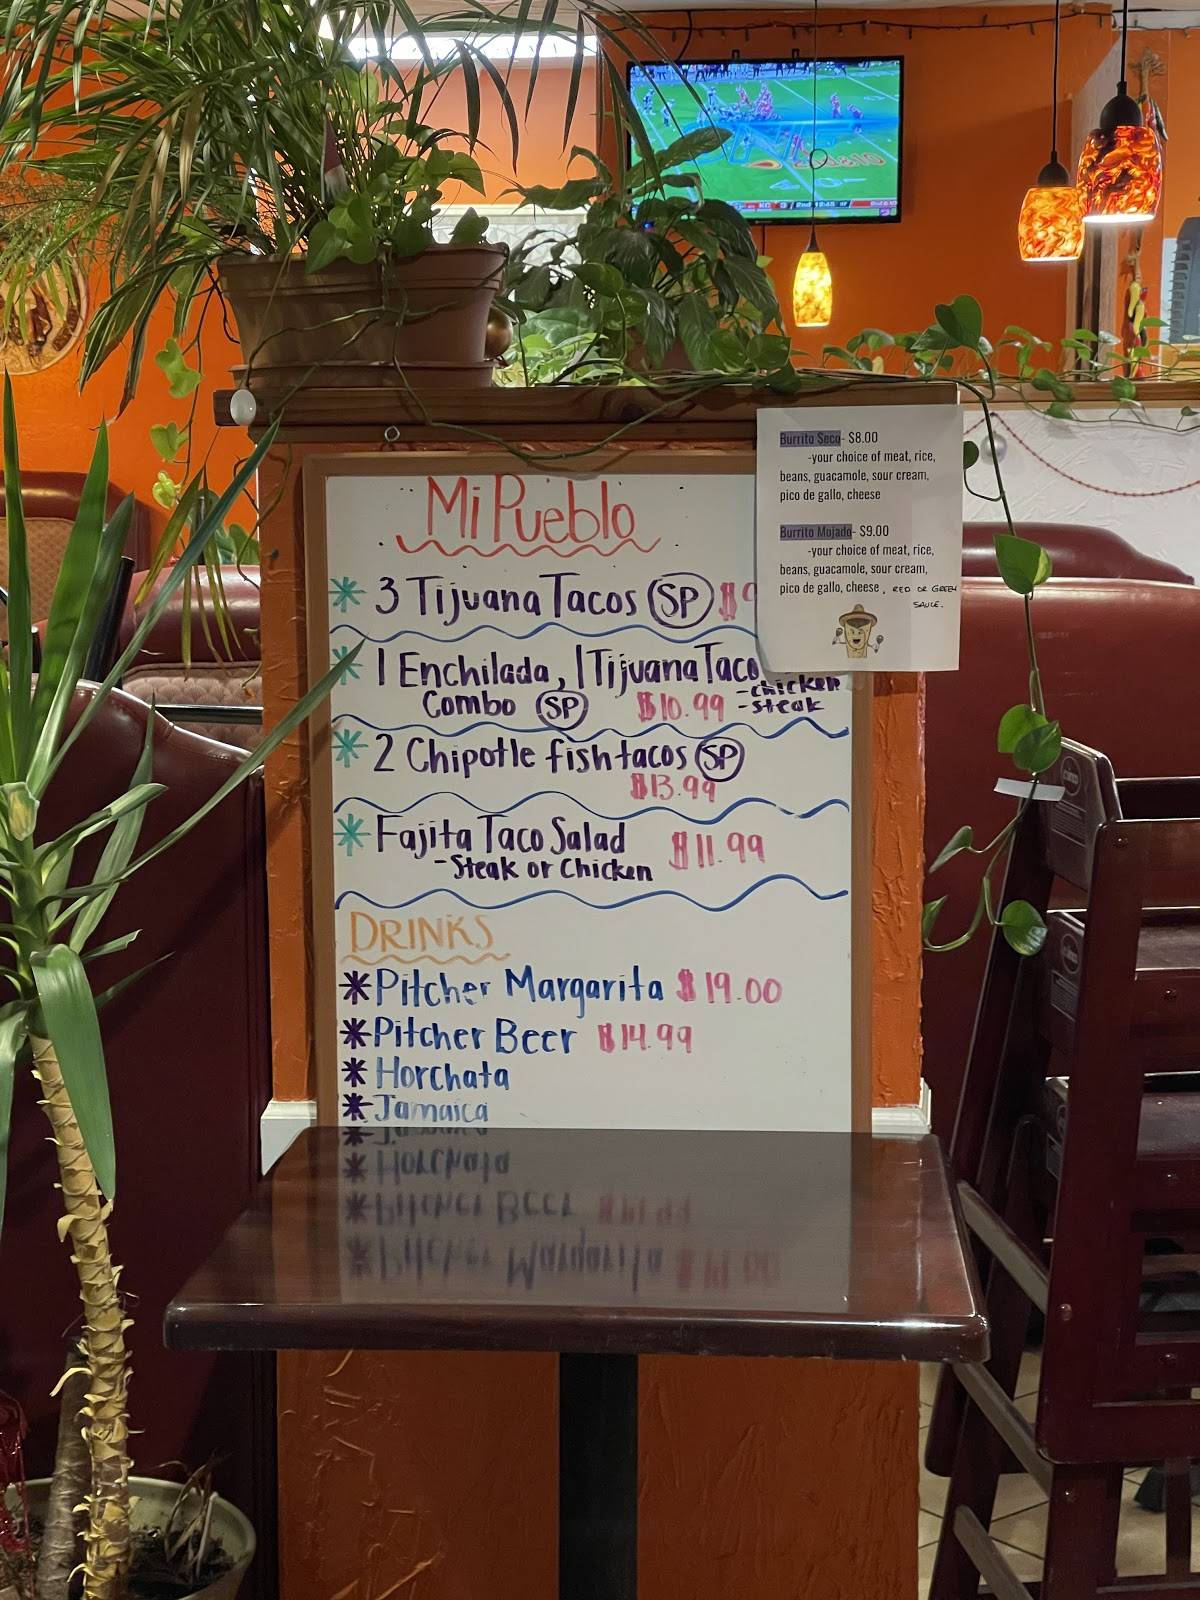 Mi Pueblo
3 Tijuana Tacos SP $9
1 Enchilada, 1 Tijuana Taco
Combo SP $10.99 -chicken
-steak
2 Chipotle fish tacos SP
$13.99
Fajita Taco Salad $11.99
-Steak or Chicken
DRINKS
Pitcher Margarita $19.00
Pitcher Beer $14.99
Horchata
Jamaica
Burrito Seco- $8.00
-your choice of meat, rice,
beans, guacamole, sour cream,
pico de gallo, cheese
Burrito Mojado- $9.00
-your choice of meat, rice,
beans, guacamole, sour cream,
pico de gallo, cheese, RED OR GREEN
SAUCE.